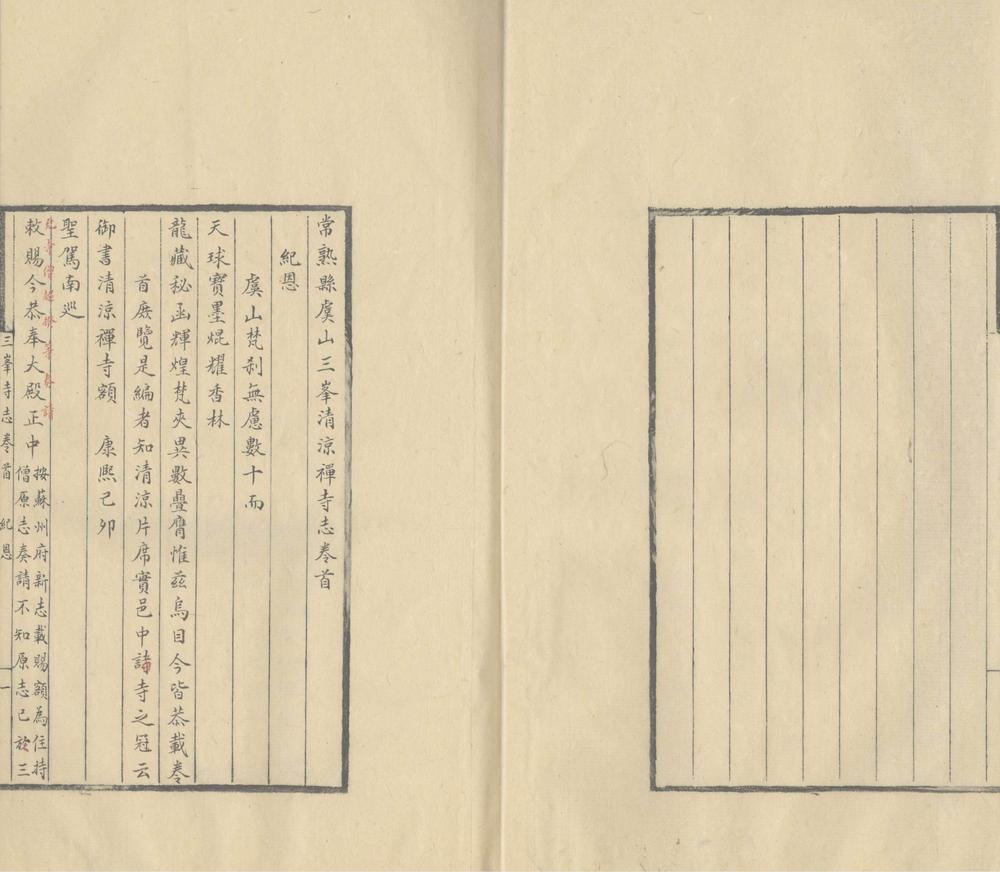 常熟縣虞山三峯清涼禪寺志卷首
紀恩
虞山梵刹無慮數十而
天球寶墨焜耀香林
龍藏秘函輝煌梵夾異數疊膺惟茲烏目今皆恭載卷
首庶覽是編者知清涼片席實邑中諸寺之冠云
御書清涼禪寺額 康熙己卯
聖駕南巡
敕賜今恭奉大殿正中
按蘇州府新志載賜額為住持
僧原志奏請不知原志已於三
三峯寺志卷首 紀恩 一